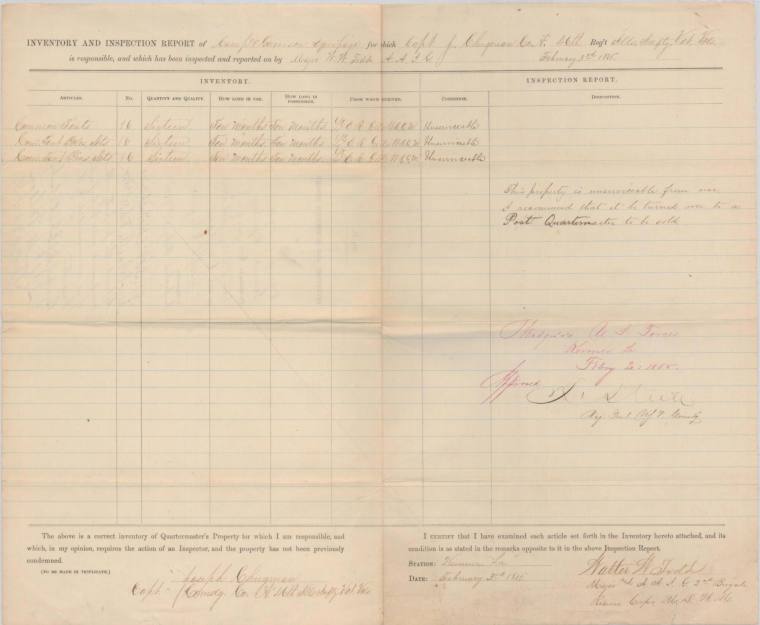 INVENTORY AND INSPECTION REPORT of Camp & Garrison Equipage for which Capt J. Clingman Co. F. 46th Reg't Ills Infty Vol.
is responsible, and which has been inspected and reported on by Major W. W. Todd A. A. I. G. February 2nd 1865
INVENTORY.
INSPECTION REPORT.
ARTICLES. No. QUANTITY AND QUALITY. HOW LONG IN USE. HOW LONG IN POSSESSION. FROM WHOM RECEIVED. CONDITION. DISPOSITION.
Common Tents 16 Sixteen Months Months Unserviceable
Com. Tent Poles Sets 16 Sixteen Months Months Unserviceable
Com. Tent Pins Sets 16 Sixteen Months Months Unserviceable
This property is unserviceable from use
I recommend that it be turned over to a
Post Quartermaster to be sold
Headqrs U. S. Forces
Kenner La
Feby 2. 1865.
Approved
Maj. Genl.
The above is a correct inventory of Quartermaster's Property for which I am responsible, and
which, in my opinion, requires the action of an Inspector, and the property has not been previously
condemned.
(TO BE MADE IN TRIPLICATE.)
Joseph Clingman
Capt Comdg. Co. 46th Ills Infty Vol.
I CERTIFY that I have examined each article set forth in the Inventory hereto attached, and its
condition is as stated in the remarks opposite to it in the above Inspection Report.
STATION: Kenner La
DATE: February 2nd 1865
Walter W. Todd
Major & A. A. I. G. 2nd Brigade
Reserve Corps